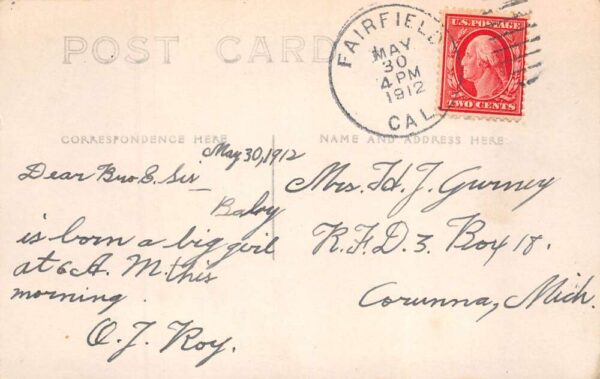 POST CARD
FAIRFIELD
MAY
30
4 PM
1912
CAL.
U.S. POSTAGE
TWO CENTS
CORRESPONDENCE HERE
NAME AND ADDRESS HERE
May 30, 1912
Dear Bro. & Sis
Baby
is born a big girl
at 6 A. M. this
morning.
O. J. Roy.
Mrs. H. J. Gurney
R. F. D. 3. Box 18.
Corunna, Mich.